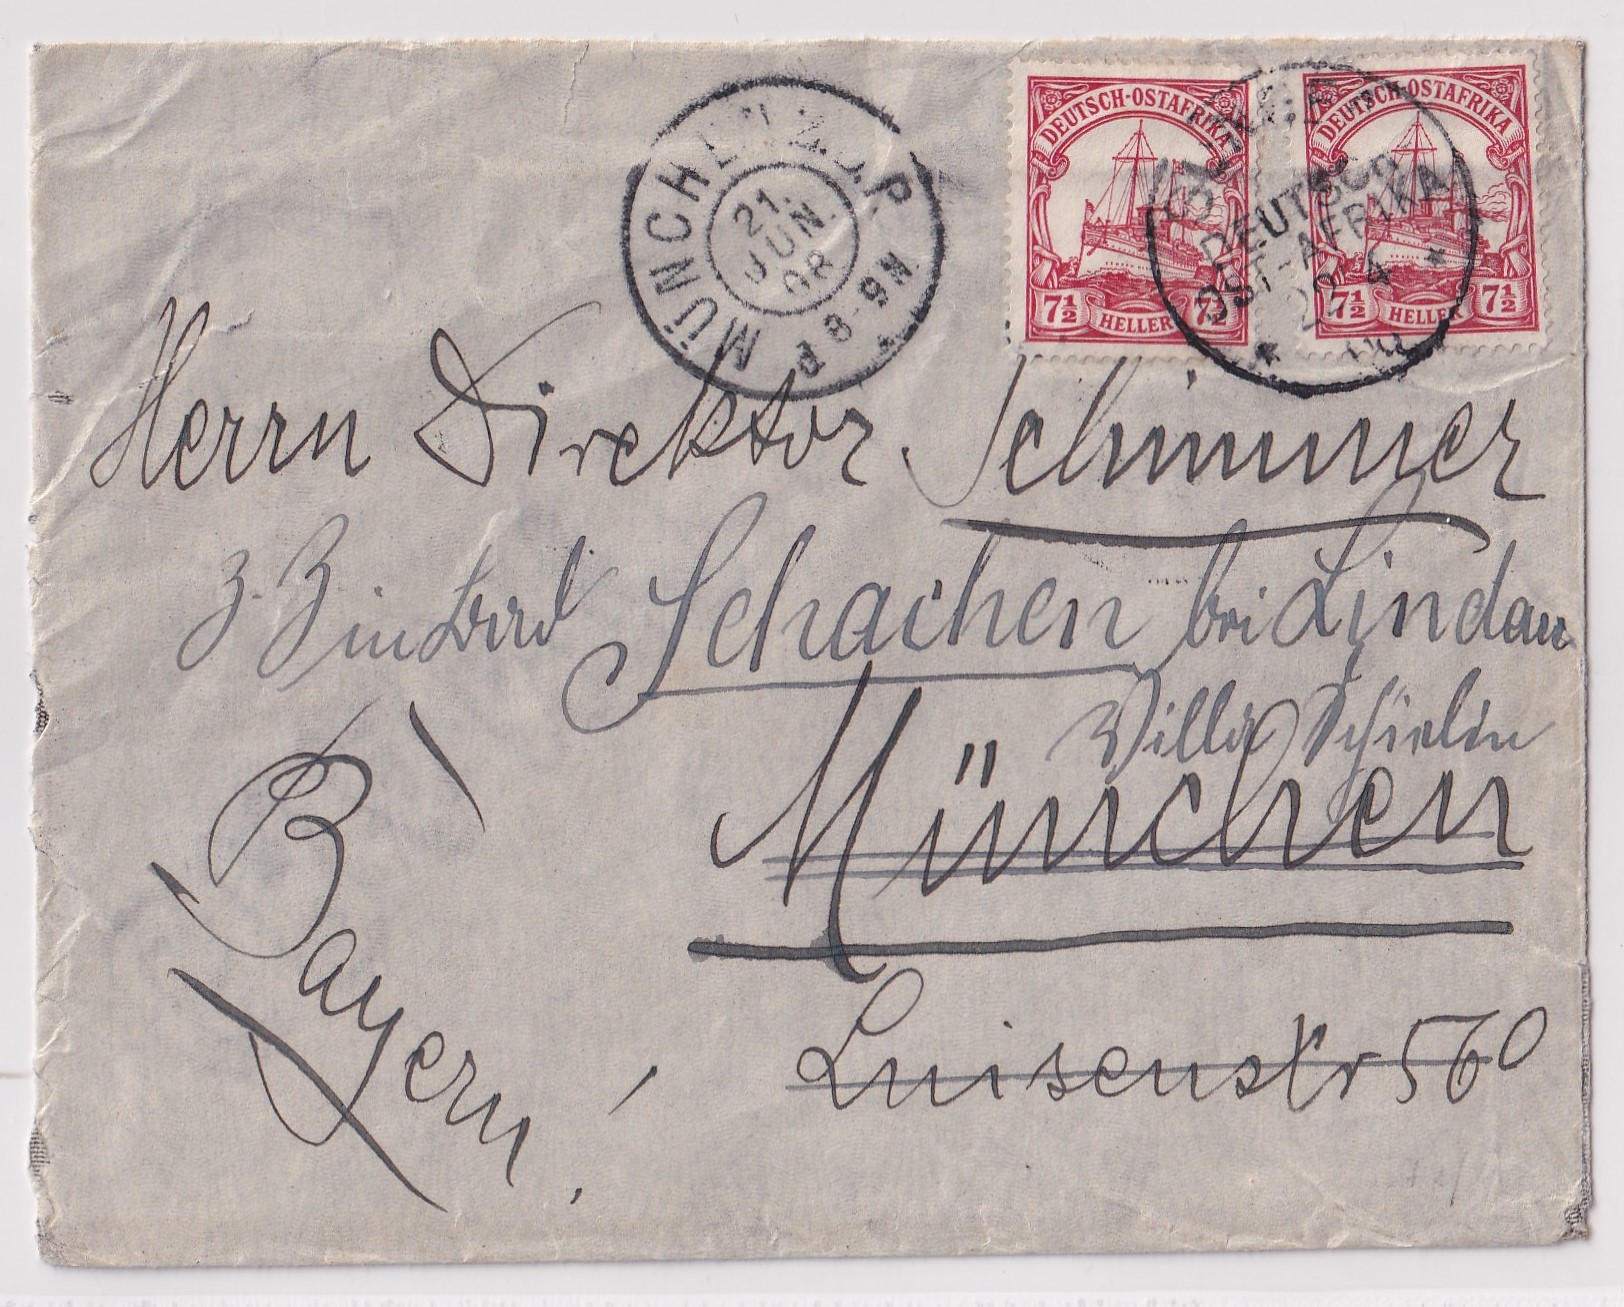 MÜNCHEN 2. B.P.
21.
JUN.
08
8-9N
DEUTSCH-OSTAFRIKA
7½ HELLER 7½
DEUTSCH-OSTAFRIKA
7½ HELLER 7½
DEUTSCH
OST-AFRIKA
Herrn Direktor Schimmer
z. Z in Bad Schachen bei Lindau
Villa Schielin
München
Luisenstr 560
Bayern!